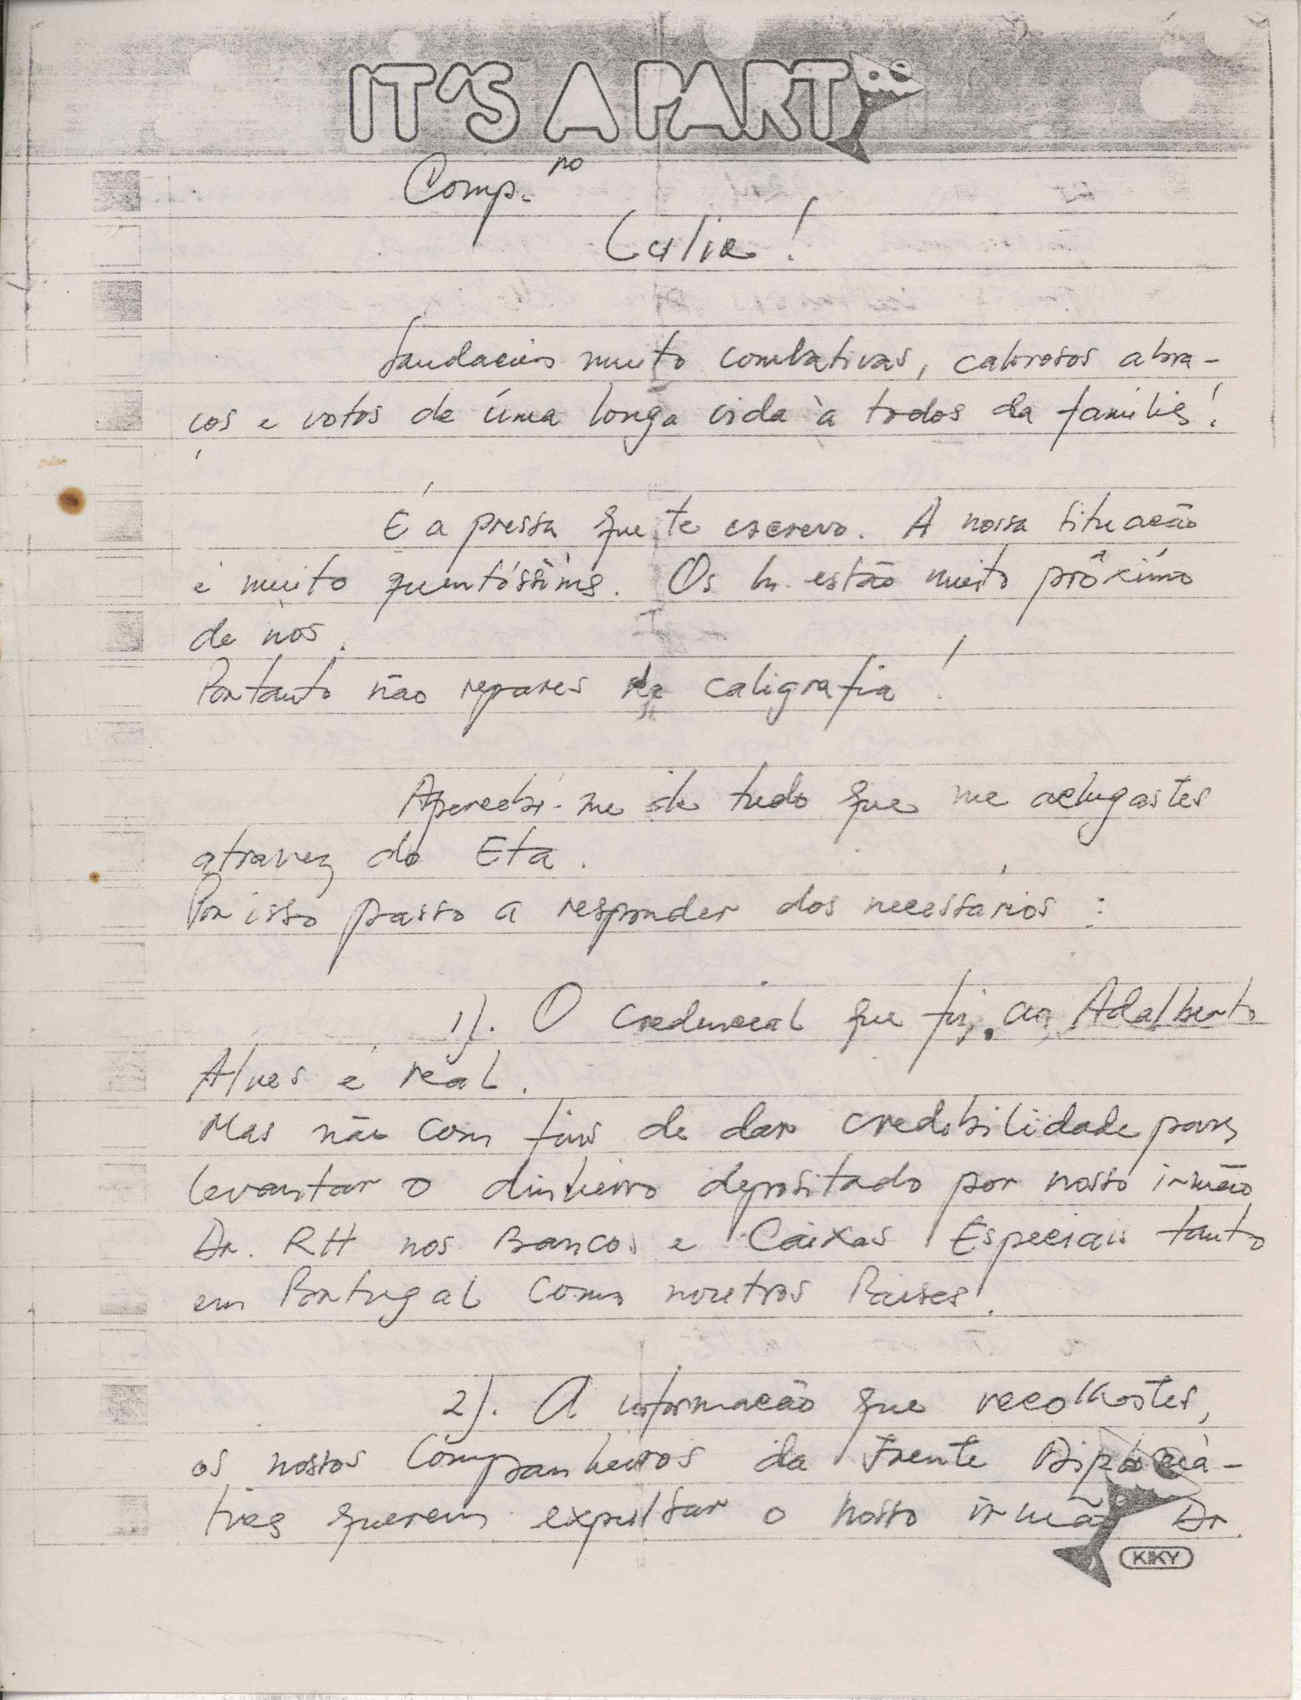 IT'S A PARTY
Comp.no
Lulia!
Saudações muito combativas, calorosos abra-
ços e votos de uma longa vida à todos da familia!
É a pressa que te escrevo. A nossa situação
é muito quentóssima. Os In. estão muito prôximo
de nós.
Portanto não repares na caligrafia!
Apercebi-me de tudo que me
atravez do Eta.
Por isso passo a responder dos necessários:
1). O credencial que fiz ao Adalberto
Alves é real.
Mas não com fins de dar credibilidade para
levantar o dinheiro depositado por nosso irmão
Dr. RH nos Bancos e Caixas Especiais tanto
em Portugal como noutros Paises!
2). A informação que recolhestes,
os nossos Companheiros da Frente Diplomá-
tica querem expulsar o nosso irmão Dr.
KIKY